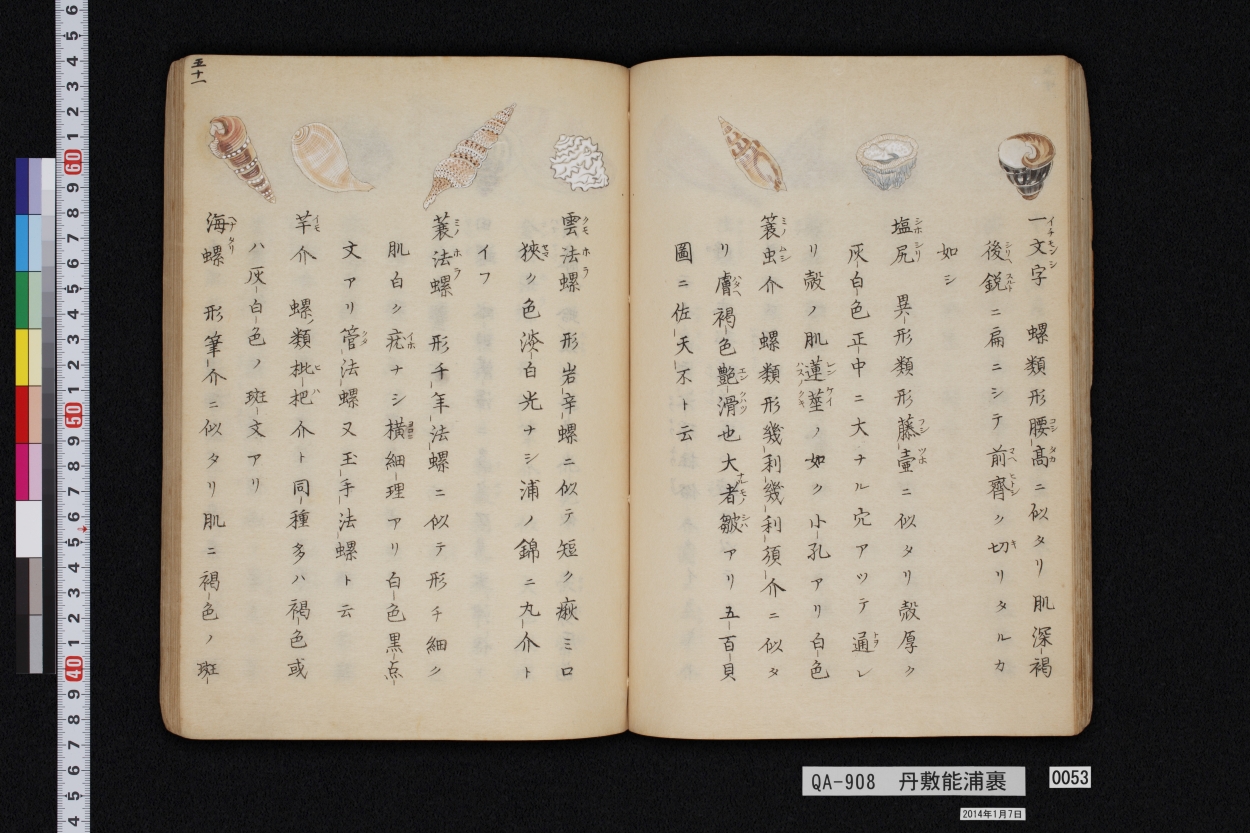 一文字 螺類形腰髙ニ似タリ肌深褐
後鋭ニ扁ニシテ前齊ク切リタルカ
如シ
塩尻 異形類形藤壷ニ似タリ殻厚ク
灰白色正中ニ大ナル穴アツテ通レ
リ殻ノ肌蓮莖ノ如ク小孔アリ白色
簑虫介 螺類形幾利幾利須介ニ似タ
リ膚褐色艶滑也大者皺アリ五百貝
圖ニ佐天不ト云
雲法螺 形岩辛螺ニ似テ短ク瘷ミロ
狹ク色淡白光ナシ浦ノ錦ニ丸介ト
イフ
蓑法螺 形千年法螺ニ似テ形チ細ク
肌白ク疣ナシ横細理アリ白色黒点
文アリ管法螺又玉手法螺ト云
芋介 螺類枇杷介ト同種多ハ褐色或
ハ灰白色ノ斑文アリ
海螺 形筆介ニ似タリ肌ニ褐色ノ斑
五十一
QA-908 丹敷能浦裹
0053
2014年1月7日